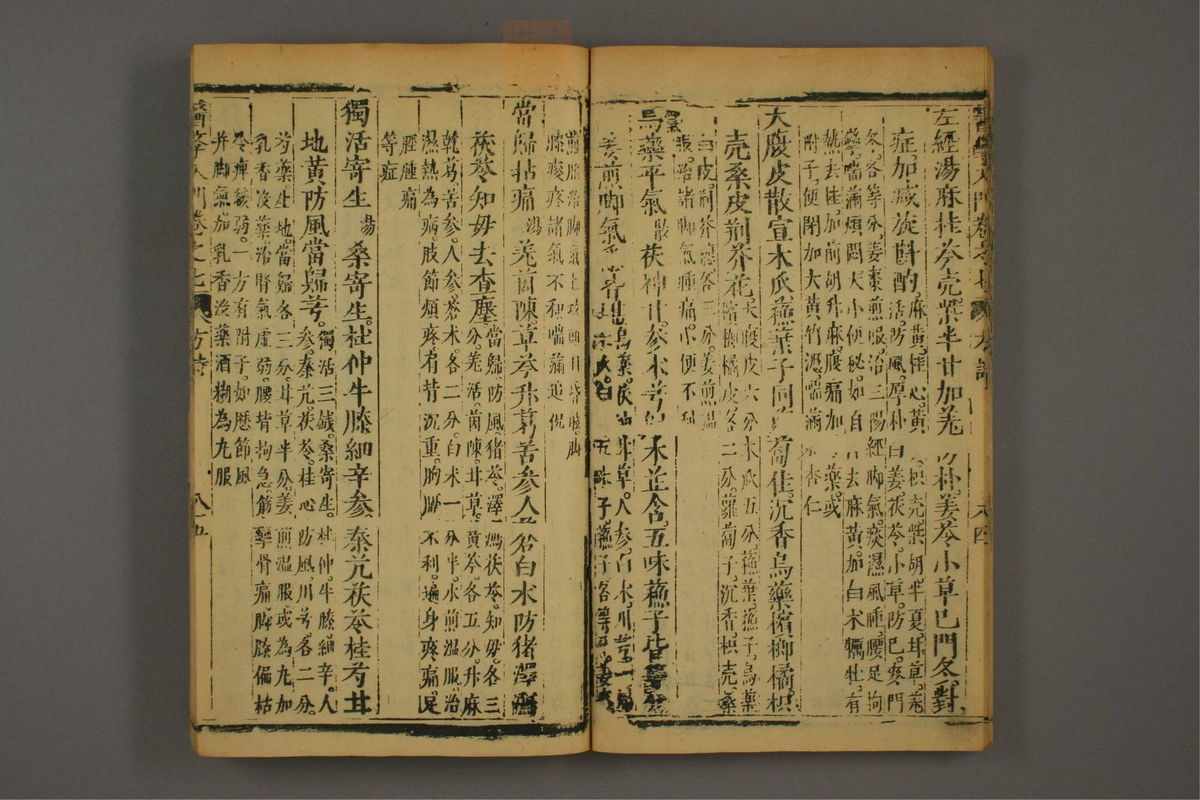 左經湯麻桂苓壳柴半甘加羌 朴姜苓小草巳門冬對
症加減旋斟酌 麻黃桂心黃 枳壳柴胡半夏甘草羌
活防風厚朴白姜茯苓小草防巳麥門
冬各等分姜棗煎服治三陽經脚氣痰濕風腫腰足拘
攣喘滿煩悶大小便秘如自 去麻黃加白术牡有
熱去桂加前胡升麻腹痛加 藥或
附子便閉加大黃竹瀝喘滿 杏仁
大腹皮散宣木瓜蘇葉子同 蔔佳沉香烏藥檳榔橘枳
壳桑皮荆芥花 大腹皮六分木瓜五分蘇葉蘇子烏藥
檳榔橘皮各二分蘿蔔子沉香枳壳桑
白皮荆芥穗各三分姜煎溫
服治諸脚氣腫痛小便不利
烏藥平氣 散 茯神甘參术芎 木並含五味蘇子皆
姜煎脚氣 烏藥茯 甘草人參白术川芎
木瓜白 五味子蘇子各等
煎服治脚氣上攻頭目昏眩脚
膝痠疼諸氣不和喘滿迫促
當歸拈痛 湯 羗茵陳草苓升葛苦參人 蒼白术防猪澤
茯苓知毋去查塵 當歸防風猪苓澤瀉茯苓知毋各三
分羌活茵陳甘草黃苓各五分升麻
乾葛苦參人參蒼术各二分白术一分半水煎溫服治
濕熱為病肢節煩疼肩背沉重胸膈不利遍身疼痛足
脛腫痛
等症
獨活寄生 湯 桑寄生杜仲牛膝細辛參 秦艽茯苓桂芍甘
地黃防風當歸芎 獨活三錢桑寄生杜仲牛膝細辛人
參秦艽茯苓桂心防風川芎各二分
芍藥生地當歸各三分甘草半分姜煎溫服或為九加
乳香沒藥治腎氣虛弱腰背拘急筋攣骨痛脚膝偏枯
冷痺緩弱一方有附子如歷節風
并脚氣加乳香沒藥酒糊為九服